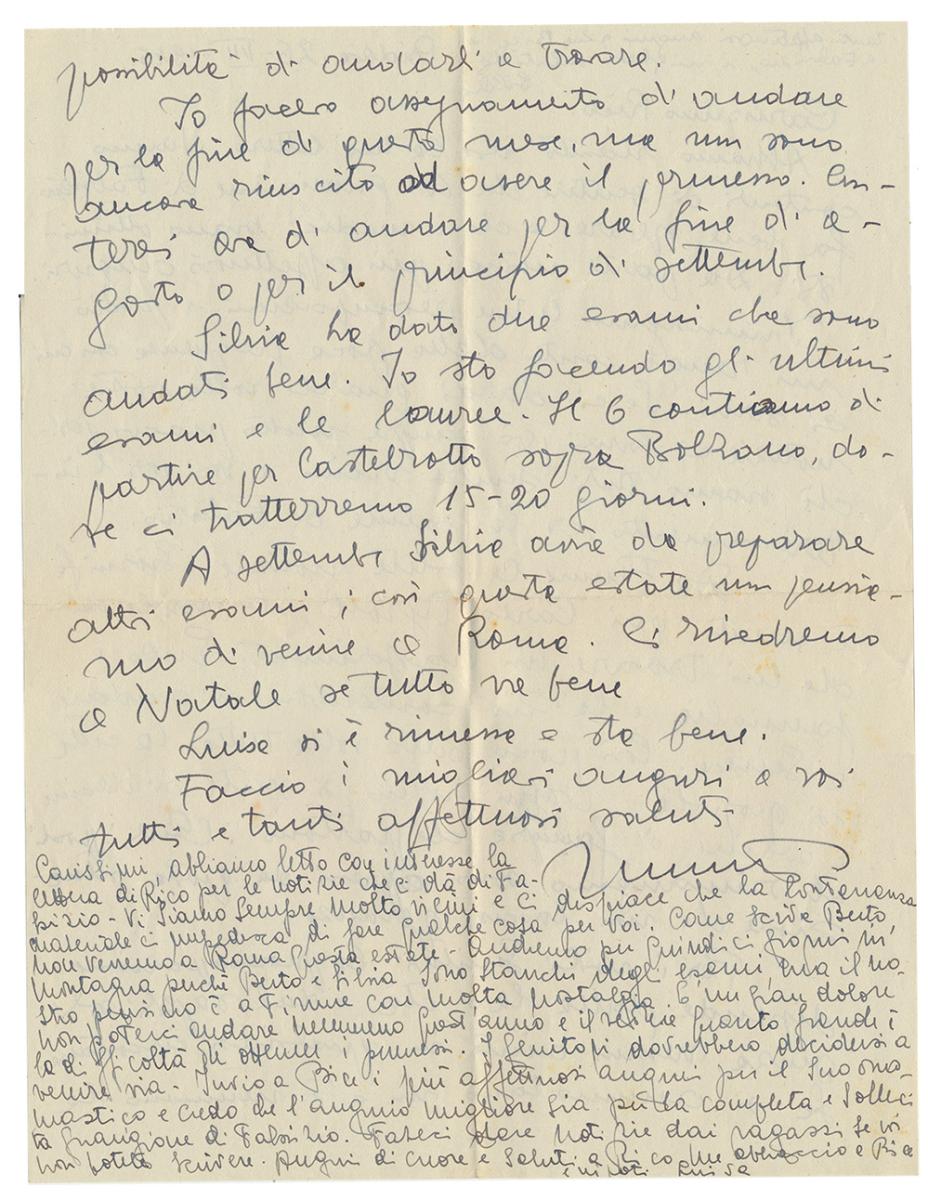 possibilità di andarli a trovare.
Io facevo assegnamento di andare
per la fine di questo mese, ma non sono
ancora riuscito ad avere il permesso. Con-
terei ora di andare per la fine di a-
gosto o per il principio di settembre.
Silvia ha dato due esami che sono
andati bene. Io sto facendo gli ultimi
esami e le lauree. Il 6 contiamo di
partire per Castelrotto sopra Bolzano, do-
ve ci tratterremo 15-20 giorni.
A settembre Silvia avrà da preparare
altri esami; così questa estate non pensia-
mo di venire a Roma. Ci rivedremo
a Natale se tutto va bene
Luisa si è rimessa e sta bene.
Faccio i migliori auguri a voi
tutti e tanti affettuosi saluti
Carissimi, abbiamo letto con interesse la
lettera di Rico per le notizie che ci dà di Fa-
brizio - Vi siamo sempre molto vicini e ci dispiace che la lontananza
materiale ci impedisca di fare qualche cosa per voi. Come scrive Berto,
non verremo a Roma questa estate - Andremo per quindici giorni in
montagna perché Berto e Silvia sono stanchi degli esami, ma il no-
stro pensiero è a Fiume con molta nostalgia. È un gran dolore
non poterci andare nemmeno quest'anno e il sapere quanto grandi è
la difficoltà di ottenere i permessi. I genitori dovrebbero decidersi a
venire via - Invio a Bice i più affettuosi auguri per il suo ono-
mastico e credo che l'augurio migliore sia per la completa e solleci
ta guarigione di Fabrizio. Fateci dare notizie dai ragazzi se voi
non potete scrivere. Auguri di cuore e saluti a Rico, un abbraccio a Bice
e nipoti Luisa